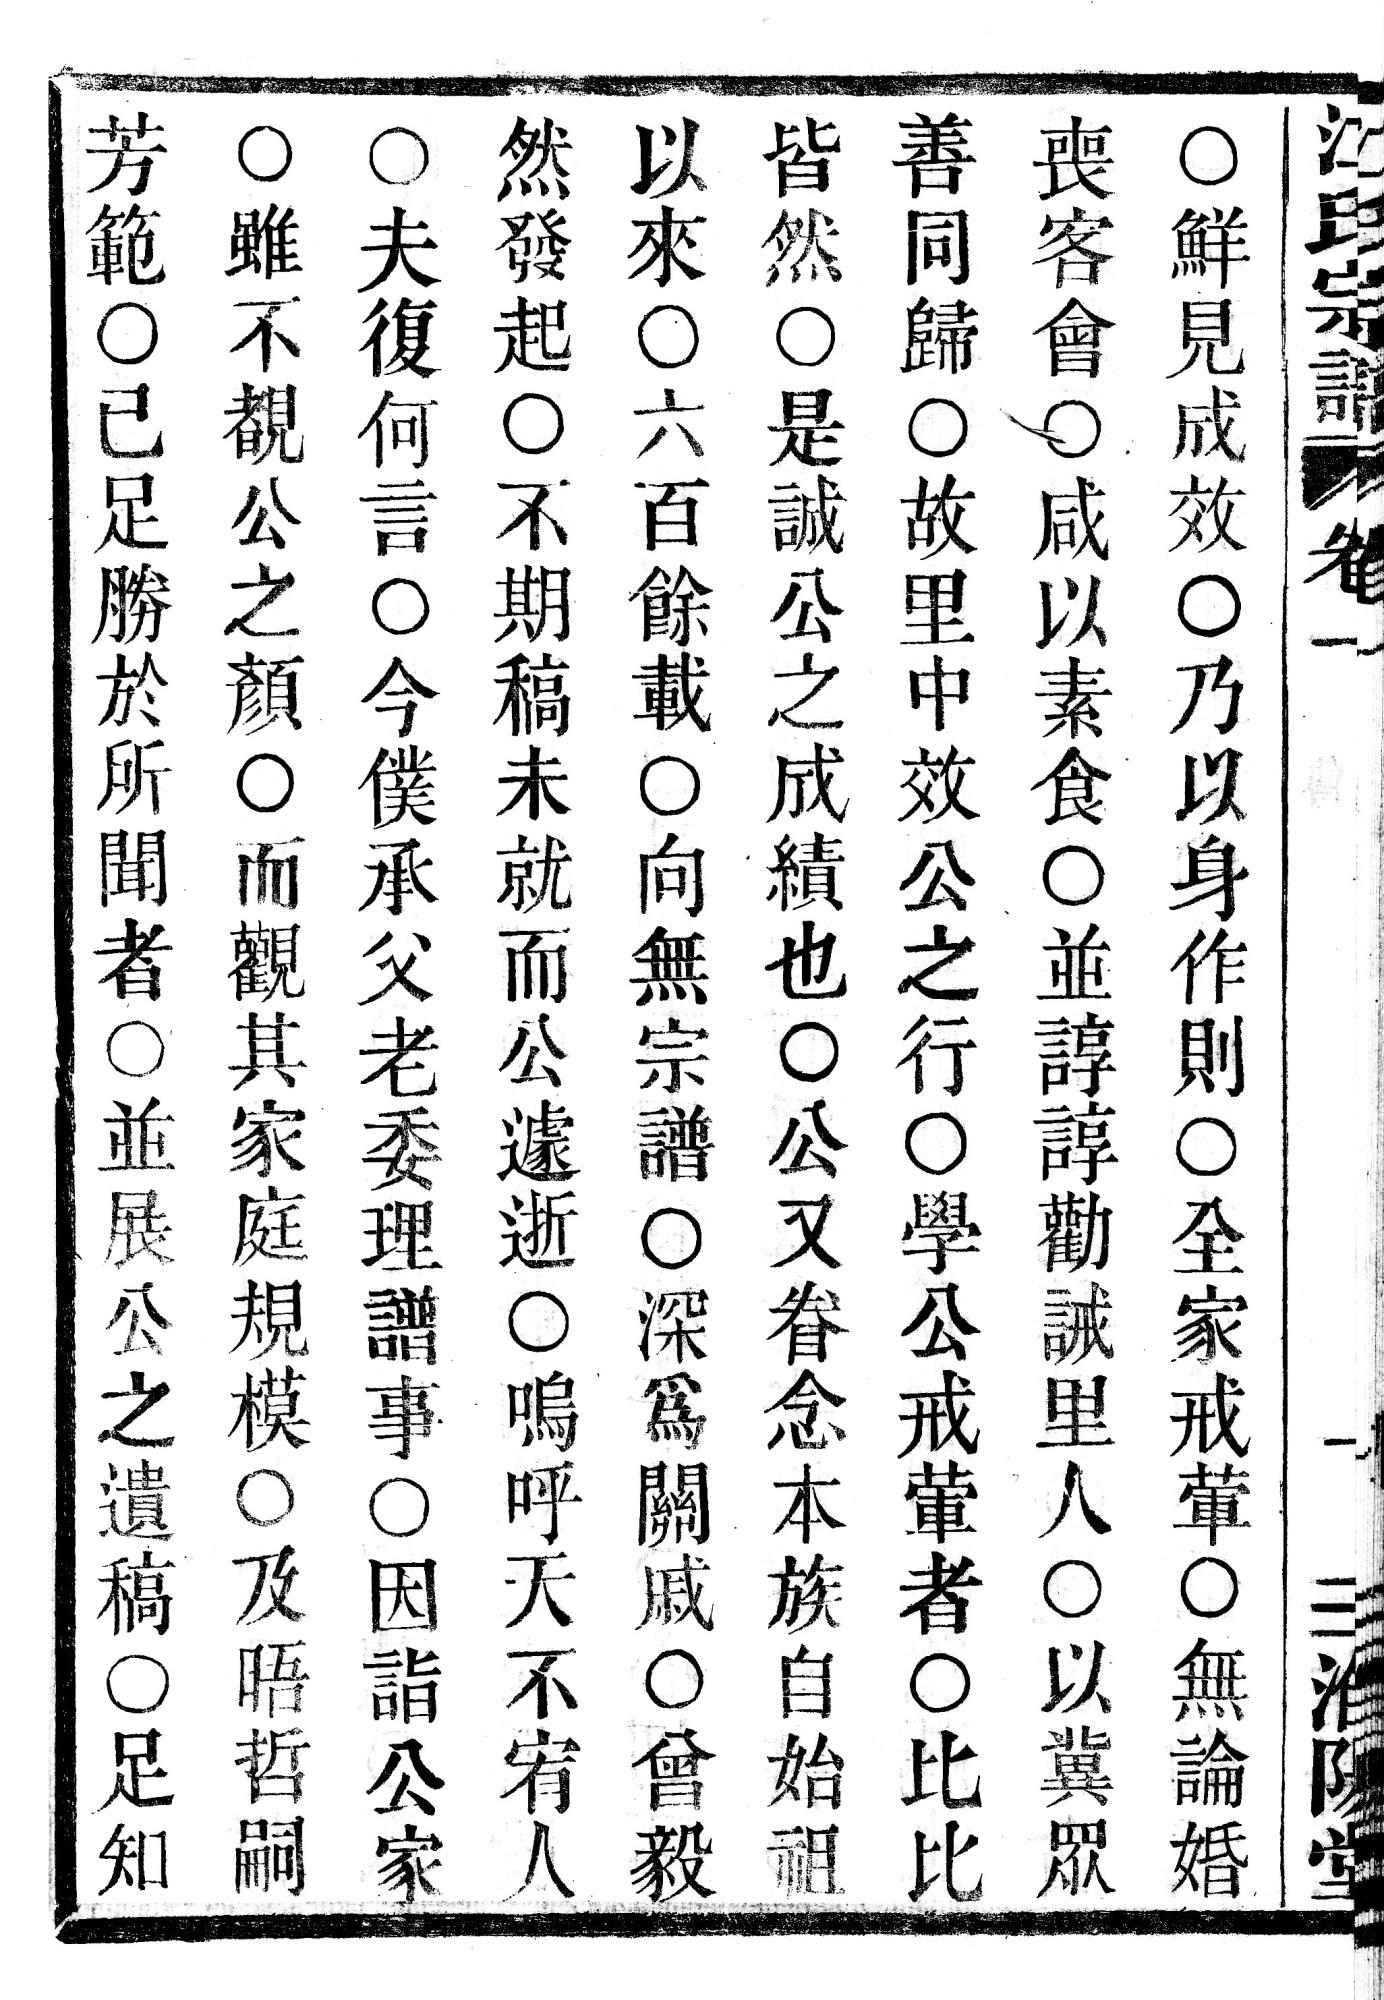 江氏宗譜 卷一 一 三 淮陽堂
○鮮見成效○乃以身作則○全家戒葷○無論婚
喪客會○咸以素食○並諄諄勸誡里人○以冀眾
善同歸○故里中效公之行○學公戒葷者○比比
皆然○是誠公之成績也○公又眷念本族自始祖
以來○六百餘載○向無宗譜○深爲關戚○曾毅
然發起○不期稿未就而公遽逝○嗚呼天不宥人
○夫復何言○今僕承父老委理譜事○因詣公家
○雖不覩公之顏○而觀其家庭規模○及晤哲嗣
芳範○已足勝於所聞者○並展公之遺稿○足知